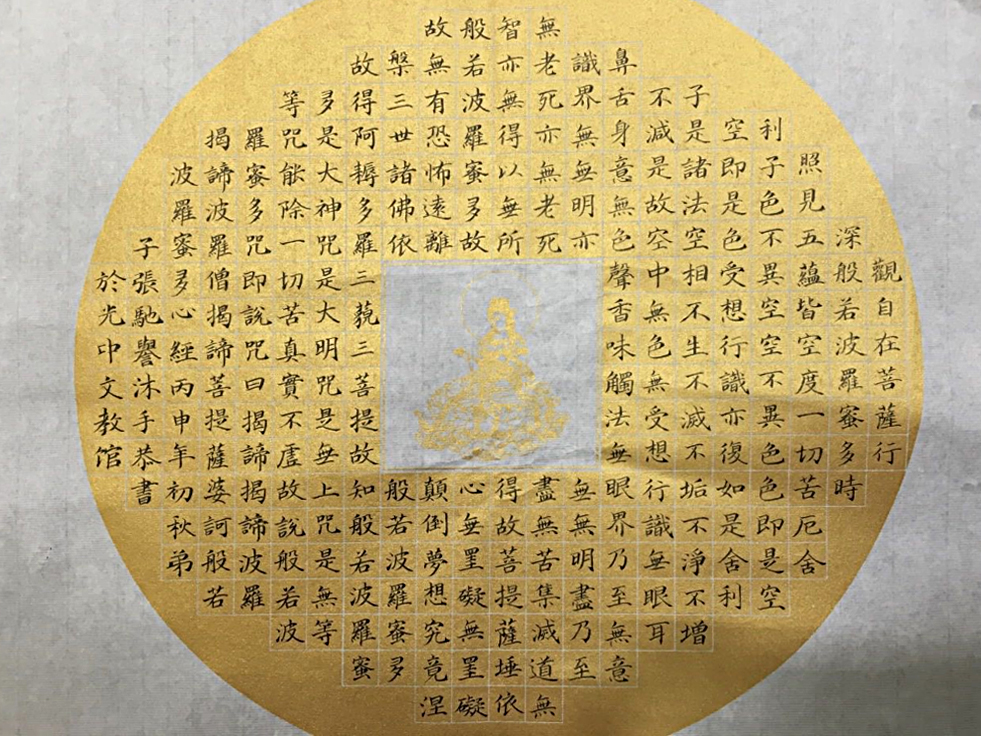 觀自在菩薩行
深般若波羅蜜多時
照見五蘊皆空度一切苦厄舍
利子色不異空空不異色色即是空
空即是色受想行識亦復如是舍利
子是諸法空相不生不滅不垢不淨不增
不減是故空中無色無受想行識無眼耳
鼻舌身意無色聲香味觸法無眼界乃至無意
識界無無明亦無無明盡乃至
無老死亦無老死盡無苦集滅道無
智亦無得以無所得故菩提薩埵依
般若波羅蜜多故心無罣礙無罣礙
故無有恐怖遠離顛倒夢想究竟涅
槃三世諸佛依般若波羅蜜多
故得阿耨多羅三藐三菩提故知般若波羅蜜
多是大神咒是大明咒是無上咒是無等
等咒能除一切苦真實不虛故說般若波
羅蜜多咒即說咒曰揭諦揭諦波羅
揭諦波羅僧揭諦菩提薩婆訶般若
波羅蜜多心經丙申年初秋弟
子張馳譽沐手恭書
於光中文教館